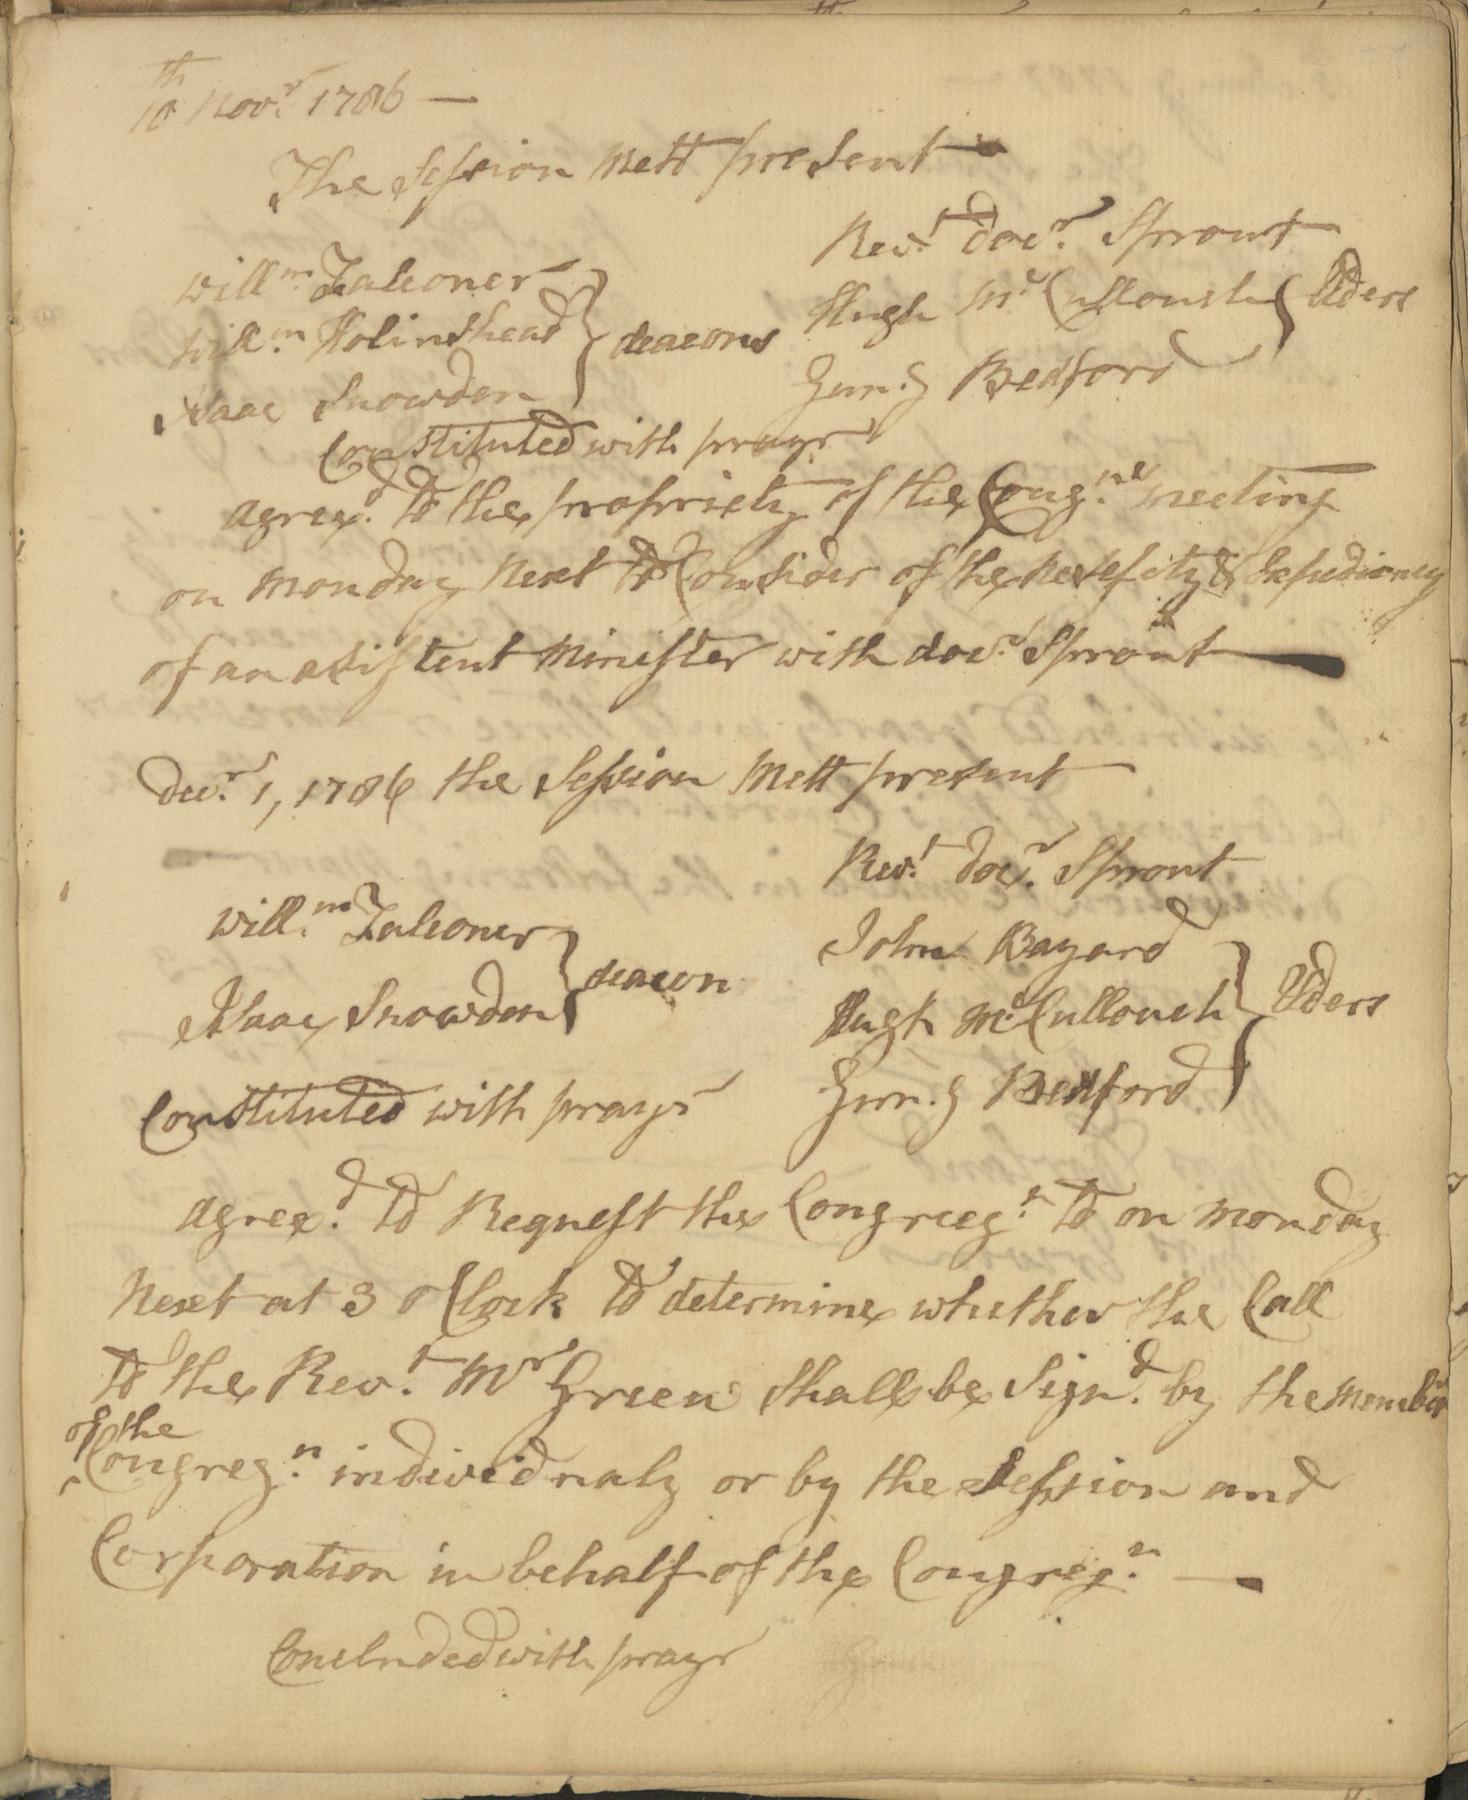 10th Novr. 1786 —
The Session Mett present —
Revt. docr. Sprout
Willm. Falconer
Hugh McCullough } Elders
Willm. Holinshead } deacons
Gunng. Bedford
Isaac Snowden
Constituted with prayr
agreed. to the propriety of the Congne. meeting
on monday Next to Consider of the Nesessity & Expediency
of an assistent Minister with docr. Sprout —
Decr. 1, 1786 the Session Mett present —
Revt. docr. Sprout
Willm. Falconer
John Bayard
Isaac Snowden } deacon
Hugh McCullough } Elders
Gunng. Bedford
Constituted with prayr
agreed. to Request the Congreegn. to on monday
Next at 3 o Clock to determine whether the Call
to the Revt. Mr Green shall be Signd. by the Members
of the
Congregn. individualy or by the Session and
Corporation in behalf of the Congregn. —
Concluded with prayr